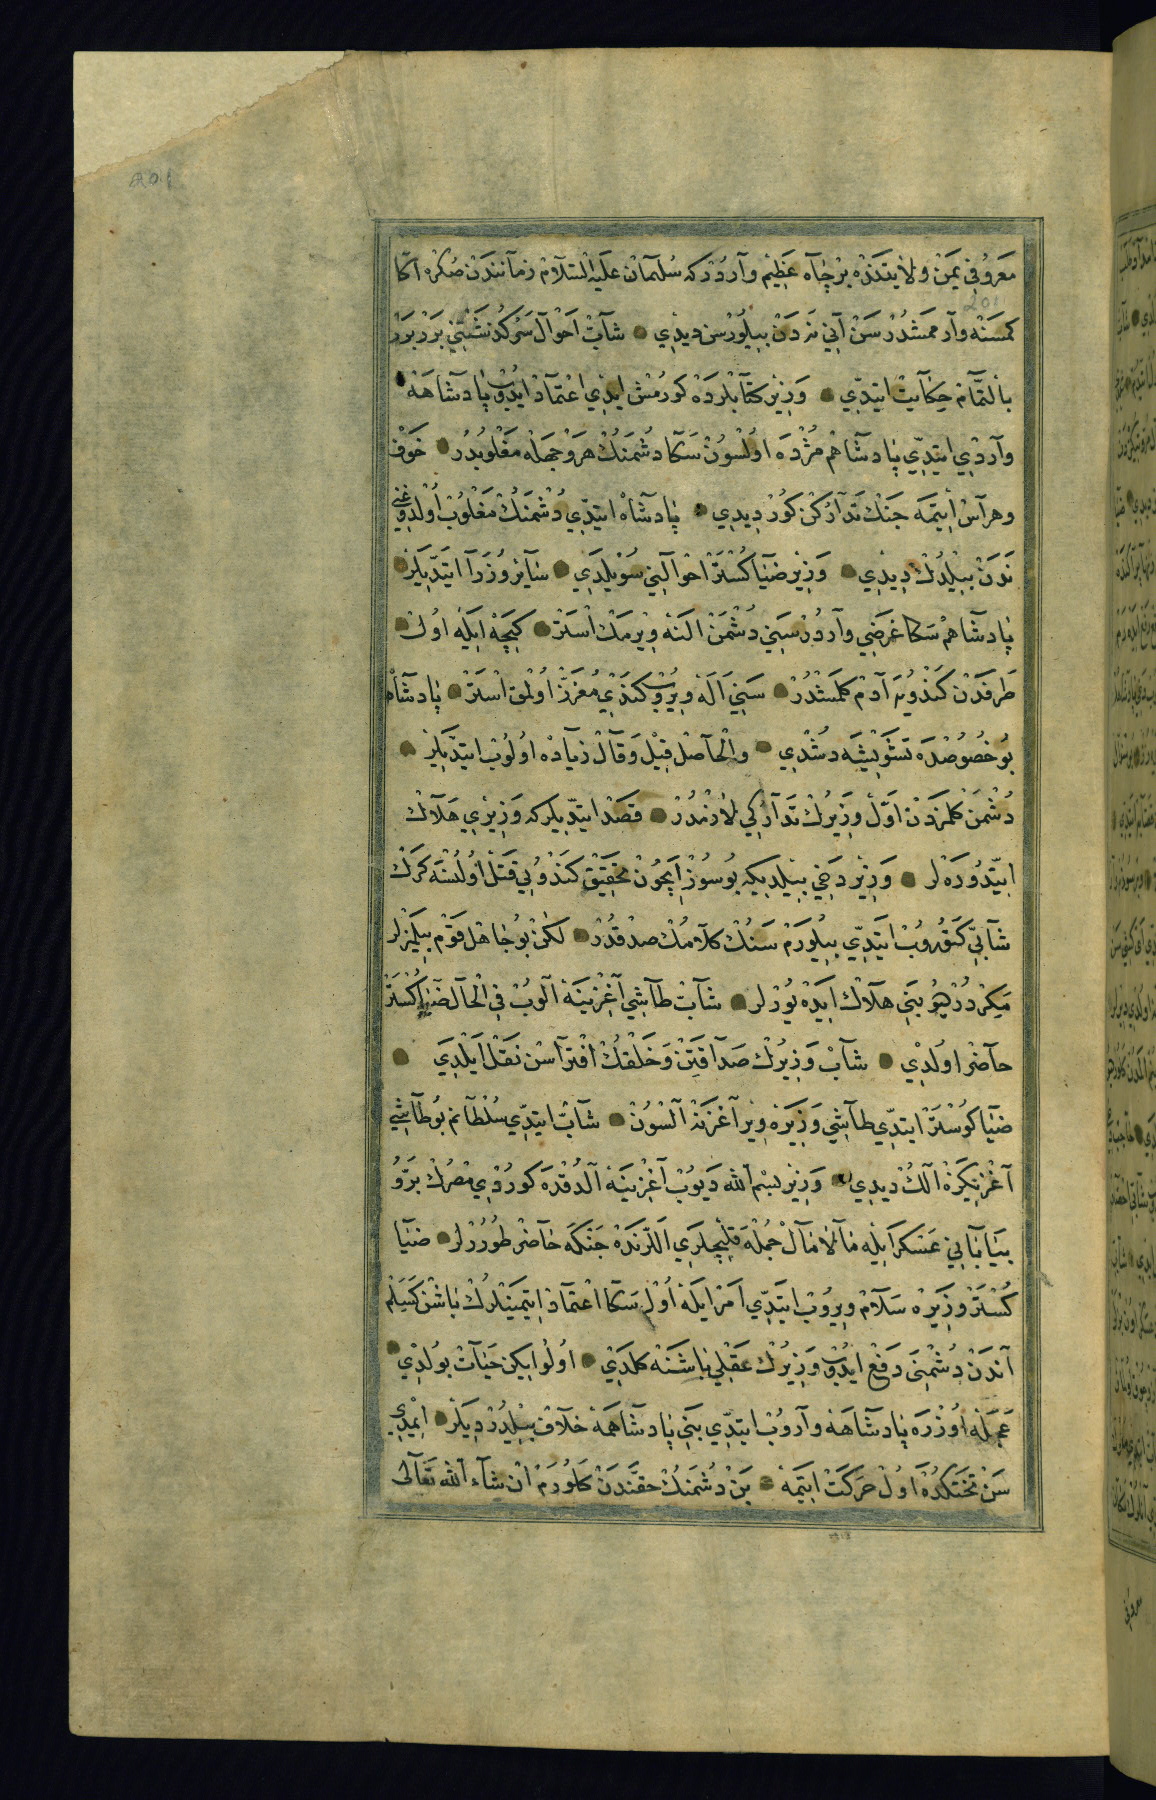 معروفى يمن ولايتنده بر چاه عظيم واردر كه سليمان عليه السلام زماننندن صكره اكا
كمسنه وارممشدر سن آنى نه دن بيلورسن ديدى ● شاب احوال سركذشتنى بر بر
بالتمام حكايت ايتدى ● وزير كتابلرده كورمش ايدى اعتماد ايدوب پادشاهه
واردى ايتدى پادشاهم مژده اولسون سكا دشمنك هر وجهله مغلوبدر ● خوف
وهراس ايتمه جنك تداركن كور ديدى ● پادشاه ايتدى دشمنك مغلوب اولدوغنى
ندن بيلدك ديدى ● وزير ضيا كستر احوالنى سويلدى ● ساير وزرا ايتديلر ●
پادشاهم سكا غرضى واردر سنى دشمن النه ويرمك استر ● كيجه ايله اول ●
طرفدن كندويه آدم كلمشدر ● سنى اله ويروب كندى معزز اولمق استر ● پادشاه
بو خصوصده تشويشه دشدى ● والحاصل قيل وقال زياده اولوب ايتديلر ●
دشمن كلمزدن اول وزيرك تداركى لازمدر ● قصد ايتديلر كه وزيرى هلاك
ايتدوره لر ● وزير دخى بيلديكه بو سوز ايچون تحقيق كندوبى قتل اولنسه كرك
شابى كتوروب ايتدى بيلورم سنك كلامك صدقدر ● لكن بو جاهل قوم بيلمزلر
مكر دركيو بنى هلاك ايده يورلر ● شاب طاشى آغزينه آلوب فى الحال ضيا كستر
حاضر اولدى ● شاب وزيرك صداقتن وخلقك افتراسن نقل ايلدى ●
ضيا كوستر ايتدى طاشى وزيره وير آغزنه آلسون ● شاب ايتدى سلطانم بو طاشى
آغزيكزه الك ديدى ● وزير بسم الله ديوب آغزينه آلدقده كوردى مصرك برو
بيابانى عسكر ايله مالامال جمله قليچلرى اللرنده جنكه حاضر طورلر ● ضيا
كستر وزيره سلام ويروب ايتدى امر ايله اول سكا اعتماد ايتمينلرك باشن كسيلم
آندن دشمنى دفع ايدوب وزيرك عقلى باشنه كلدى ● اولو ايكن حيات بولدى ●
عجله اوزره پادشاهه واروب ايتدى بنى پادشاهمه خلاف بيلدرديلر ● ايمدى
سن تختكده اول حركت ايتمه ● بن دشمنك حقندن كلورم ان شاء الله تعالى
201
معروفى